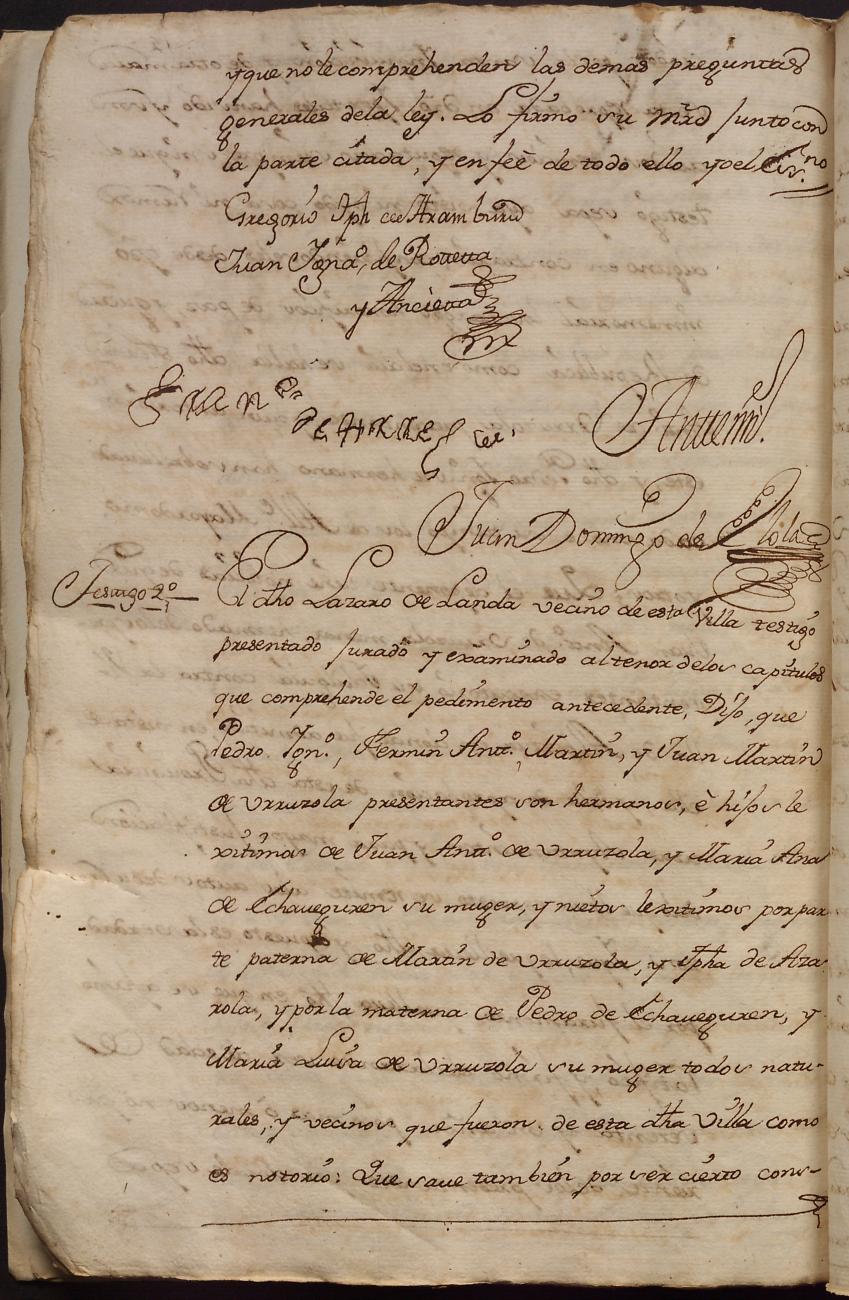 y que no le comprehenden las demas preguntas
generales de la ley. Lo firmo su mrd junto con
la parte citada, y en feè de todo ello yo el Essno
Gregorio Jph de Aramburu
Juan Igna.º de Rottetta
y Ancieta
Fran.co
de
Antemi.
Juan Domingo de Olola
Testigo 2.º
El dho Lazaro de Landa vecino de esta Villa testigo
presentado jurado y examinado al tenor de los capitulos
que comprehende el pedimento antecedente, Dijo, que
Pedro Ign.º, Fermin Ant.º, Martin, y Juan Martin
de Urruzola presentantes son hermanos, è hijos le
xitimos de Juan Ant.º de Urruzola, y Maria Ana
de Echaueguren su muger, y nietos lexitimos por par
te paterna de Martin de Urruzola, y Jpha de Aza
rola, y por la materna de Pedro de Echaueguren, y
Maria Luisa de Urruzola su muger todos natu-
rales, y vecinos que fueron de esta dha Villa como
es notorio: Que saue tambien por ser cierto cons-